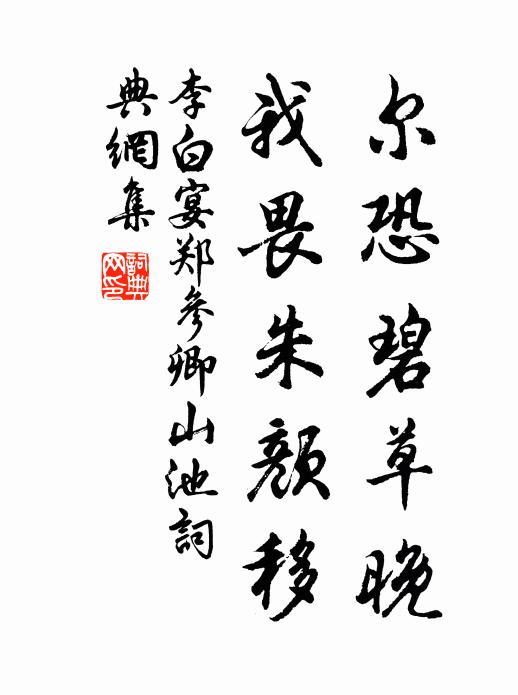 尔恐碧草晚
我畏朱颜移
李白宴郑参卿山池詞
典網集
詞典
网印